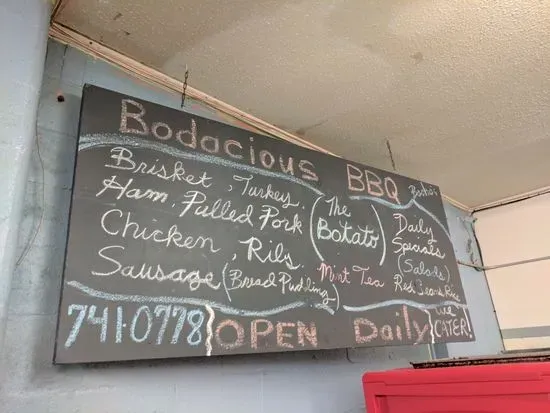 Bodacious BBQ
Brisket, Turkey.
Ham, Pulled Pork
Chicken, Ribs.
Sausage (Bread Pudding)
(The Botato)
Mint Tea
Daily
Specials
(Salads)
Red Beans Rice
741-0778 OPEN Daily
We
CATER!